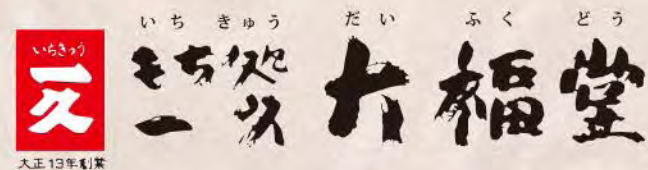 いちきゅう
一久
大正13年創業
いち きゅう だい ふく どう
もち処
一久 大福堂